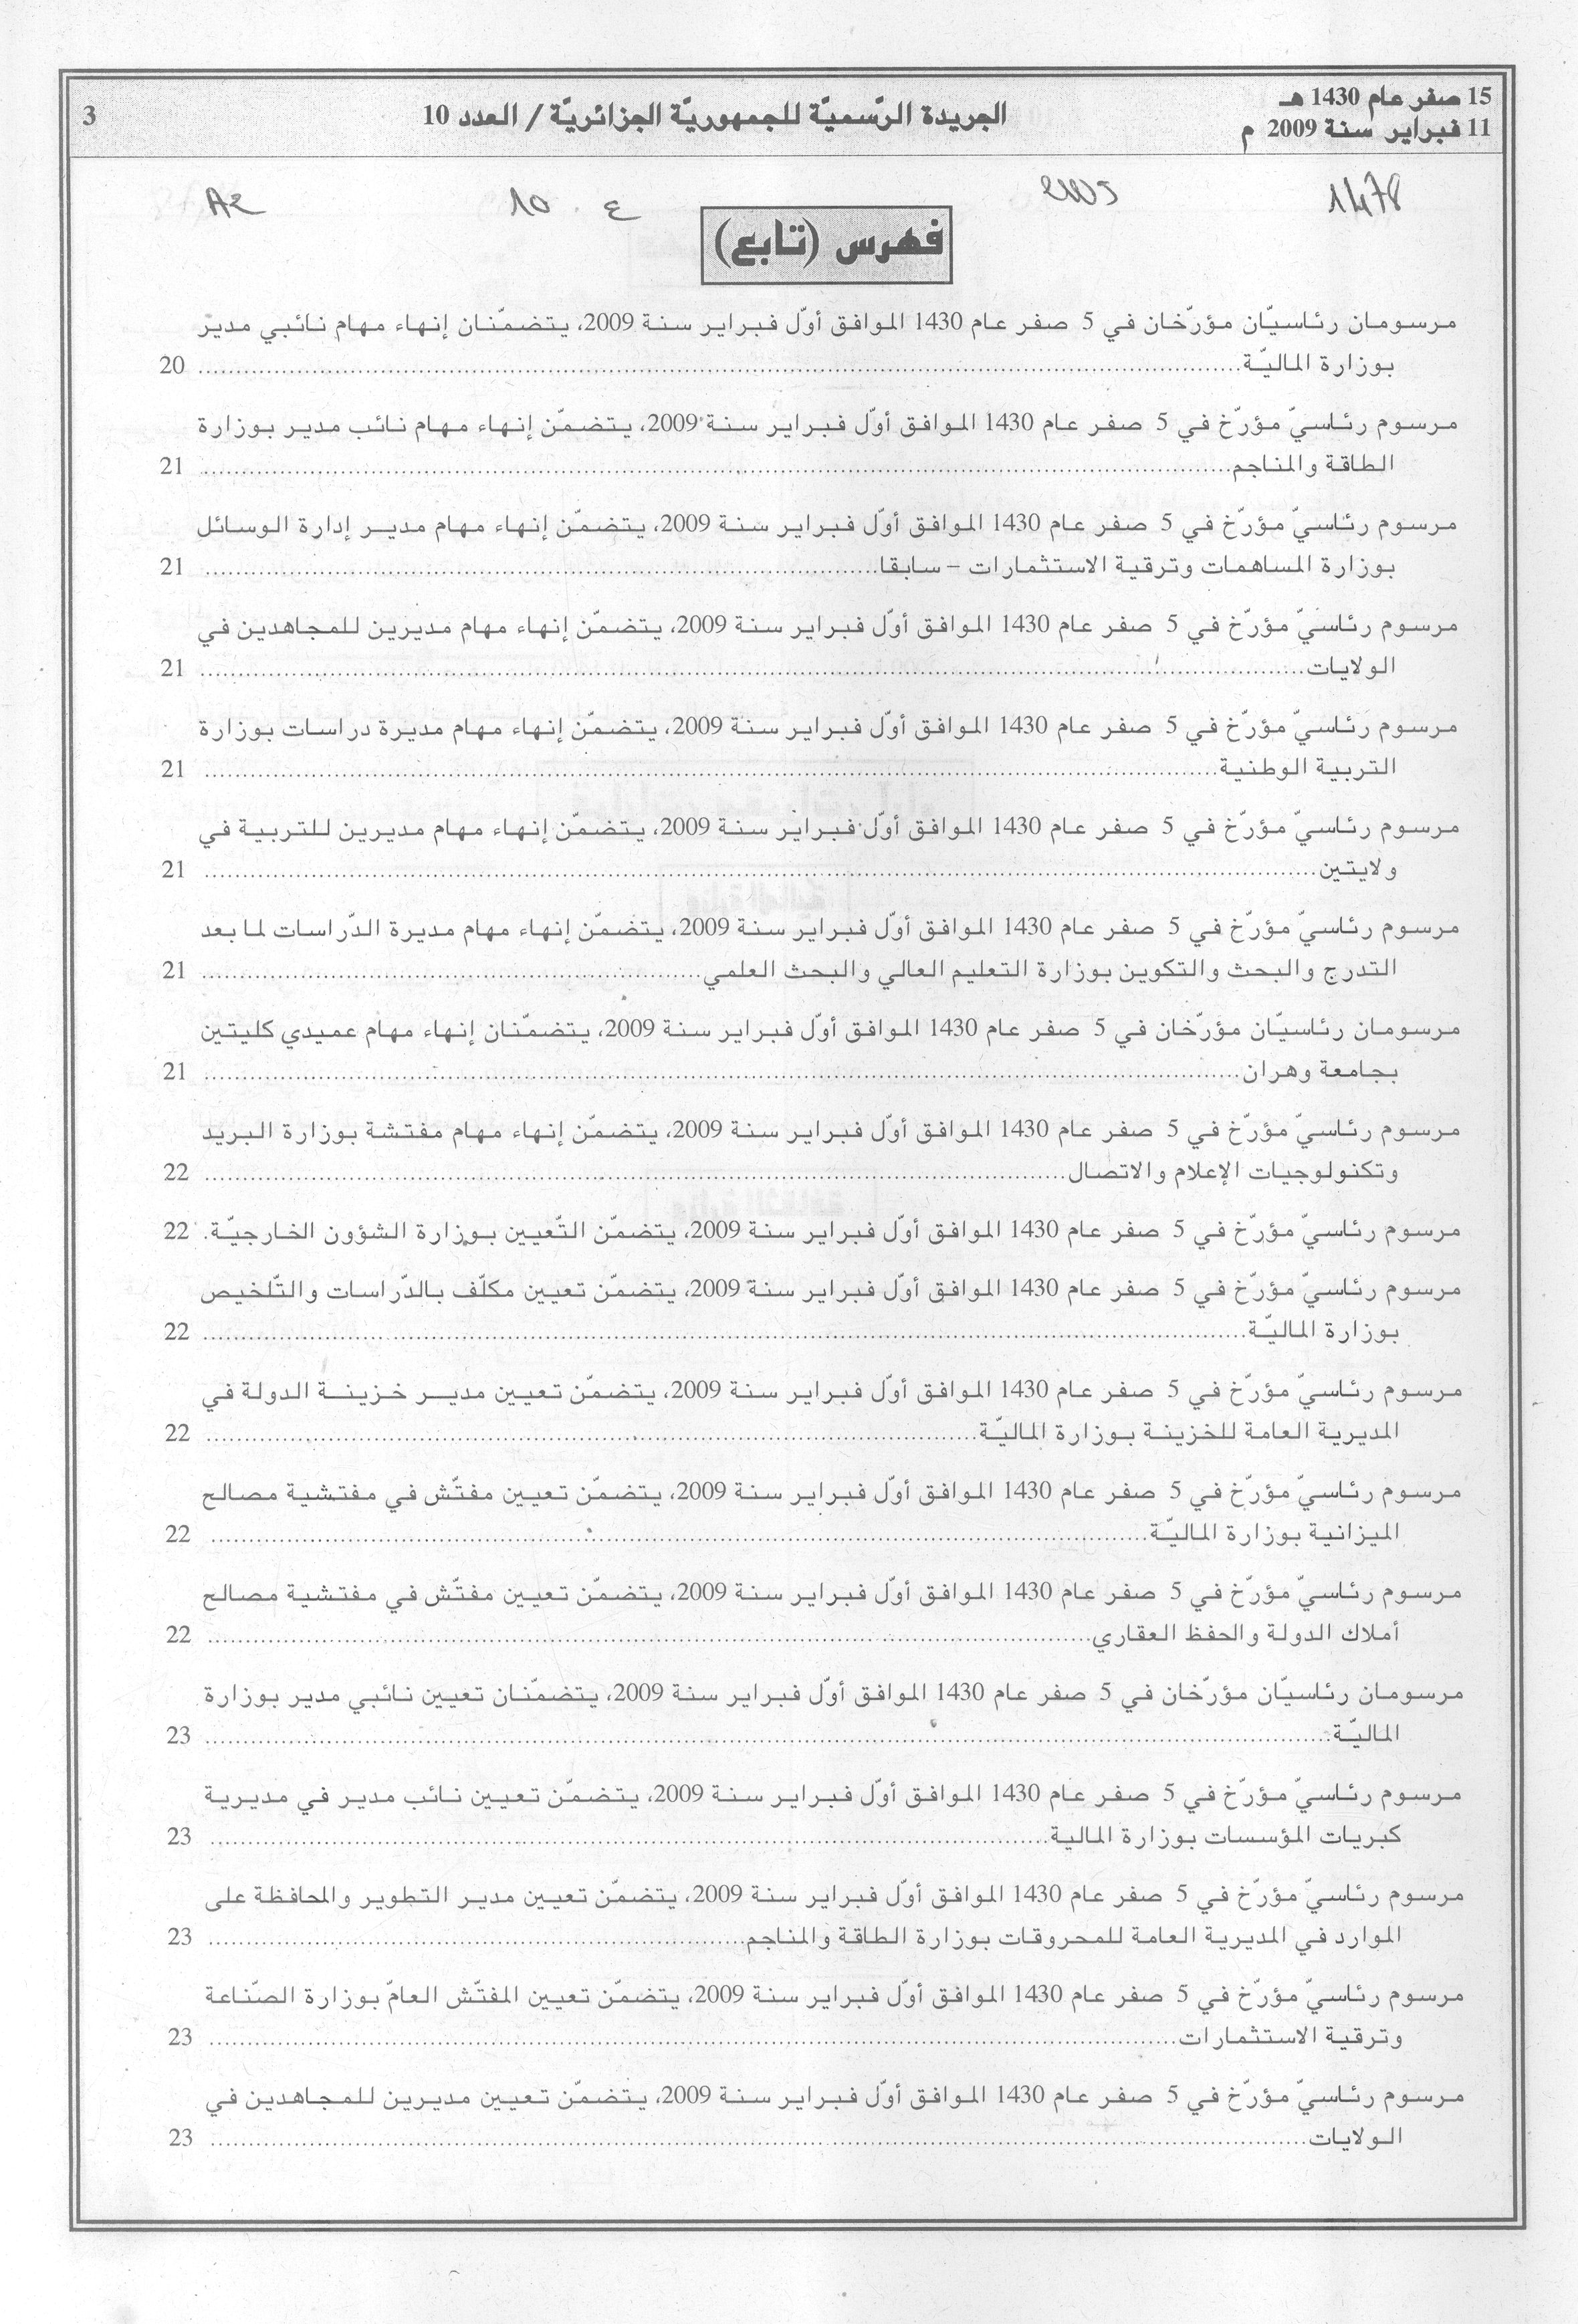 15 صفر عام 1430 هـ
11 فبراير سنة 2009 م
الجريدة الرّسميّة للجمهوريّة الجزائريّة / العدد 10
3
1478
10 ع
A2
فهرس (تابع)
مرسومان رئاسيّان مؤرّخان في 5 صفر عام 1430 الموافق أوّل فبراير سنة 2009، يتضمّنان إنهاء مهام نائبي مدير
بوزارة الماليّة........ 20
مرسوم رئاسيّ مؤرّخ في 5 صفر عام 1430 الموافق أوّل فبراير سنة 2009، يتضمّن إنهاء مهام نائب مدير بوزارة
الطاقة والمناجم........ 21
مرسوم رئاسيّ مؤرّخ في 5 صفر عام 1430 الموافق أوّل فبراير سنة 2009، يتضمّن إنهاء مهام مدير إدارة الوسائل
بوزارة المساهمات وترقية الاستثمارات – سابقا........ 21
مرسوم رئاسيّ مؤرّخ في 5 صفر عام 1430 الموافق أوّل فبراير سنة 2009، يتضمّن إنهاء مهام مديرين للمجاهدين في
الولايات........ 21
مرسوم رئاسيّ مؤرّخ في 5 صفر عام 1430 الموافق أوّل فبراير سنة 2009، يتضمّن إنهاء مهام مديرة دراسات بوزارة
التربية الوطنية........ 21
مرسوم رئاسيّ مؤرّخ في 5 صفر عام 1430 الموافق أوّل فبراير سنة 2009، يتضمّن إنهاء مهام مديرين للتربية في
ولايتين........ 21
مرسوم رئاسيّ مؤرّخ في 5 صفر عام 1430 الموافق أوّل فبراير سنة 2009، يتضمّن إنهاء مهام مديرة الدّراسات لما بعد
التدرج والبحث والتكوين بوزارة التعليم العالي والبحث العلمي........ 21
مرسومان رئاسيّان مؤرّخان في 5 صفر عام 1430 الموافق أوّل فبراير سنة 2009، يتضمّنان إنهاء مهام عميدي كليتين
بجامعة وهران........ 21
مرسوم رئاسيّ مؤرّخ في 5 صفر عام 1430 الموافق أوّل فبراير سنة 2009، يتضمّن إنهاء مهام مفتشة بوزارة البريد
وتكنولوجيات الإعلام والاتصال........ 22
مرسوم رئاسيّ مؤرّخ في 5 صفر عام 1430 الموافق أوّل فبراير سنة 2009، يتضمّن التّعيين بوزارة الشؤون الخارجيّة. 22
مرسوم رئاسيّ مؤرّخ في 5 صفر عام 1430 الموافق أوّل فبراير سنة 2009، يتضمّن تعيين مكلّف بالدّراسات والتّلخيص
بوزارة الماليّة........ 22
مرسوم رئاسيّ مؤرّخ في 5 صفر عام 1430 الموافق أوّل فبراير سنة 2009، يتضمّن تعيين مدير خزينة الدولة في
المديرية العامة للخزينة بوزارة الماليّة........ 22
مرسوم رئاسيّ مؤرّخ في 5 صفر عام 1430 الموافق أوّل فبراير سنة 2009، يتضمّن تعيين مفتّش في مفتشية مصالح
الميزانية بوزارة الماليّة........ 22
مرسوم رئاسيّ مؤرّخ في 5 صفر عام 1430 الموافق أوّل فبراير سنة 2009، يتضمّن تعيين مفتّش في مفتشية مصالح
أملاك الدولة والحفظ العقاري........ 22
مرسومان رئاسيّان مؤرّخان في 5 صفر عام 1430 الموافق أوّل فبراير سنة 2009، يتضمّنان تعيين نائبي مدير بوزارة
الماليّة........ 23
مرسوم رئاسيّ مؤرّخ في 5 صفر عام 1430 الموافق أوّل فبراير سنة 2009، يتضمّن تعيين نائب مدير في مديرية
كبريات المؤسسات بوزارة المالية........ 23
مرسوم رئاسيّ مؤرّخ في 5 صفر عام 1430 الموافق أوّل فبراير سنة 2009، يتضمّن تعيين مدير التطوير والمحافظة على
الموارد في المديرية العامة للمحروقات بوزارة الطاقة والمناجم........ 23
مرسوم رئاسيّ مؤرّخ في 5 صفر عام 1430 الموافق أوّل فبراير سنة 2009، يتضمّن تعيين المفتّش العامّ بوزارة الصّناعة
وترقية الاستثمارات........ 23
مرسوم رئاسيّ مؤرّخ في 5 صفر عام 1430 الموافق أوّل فبراير سنة 2009، يتضمّن تعيين مديرين للمجاهدين في
الولايات........ 23